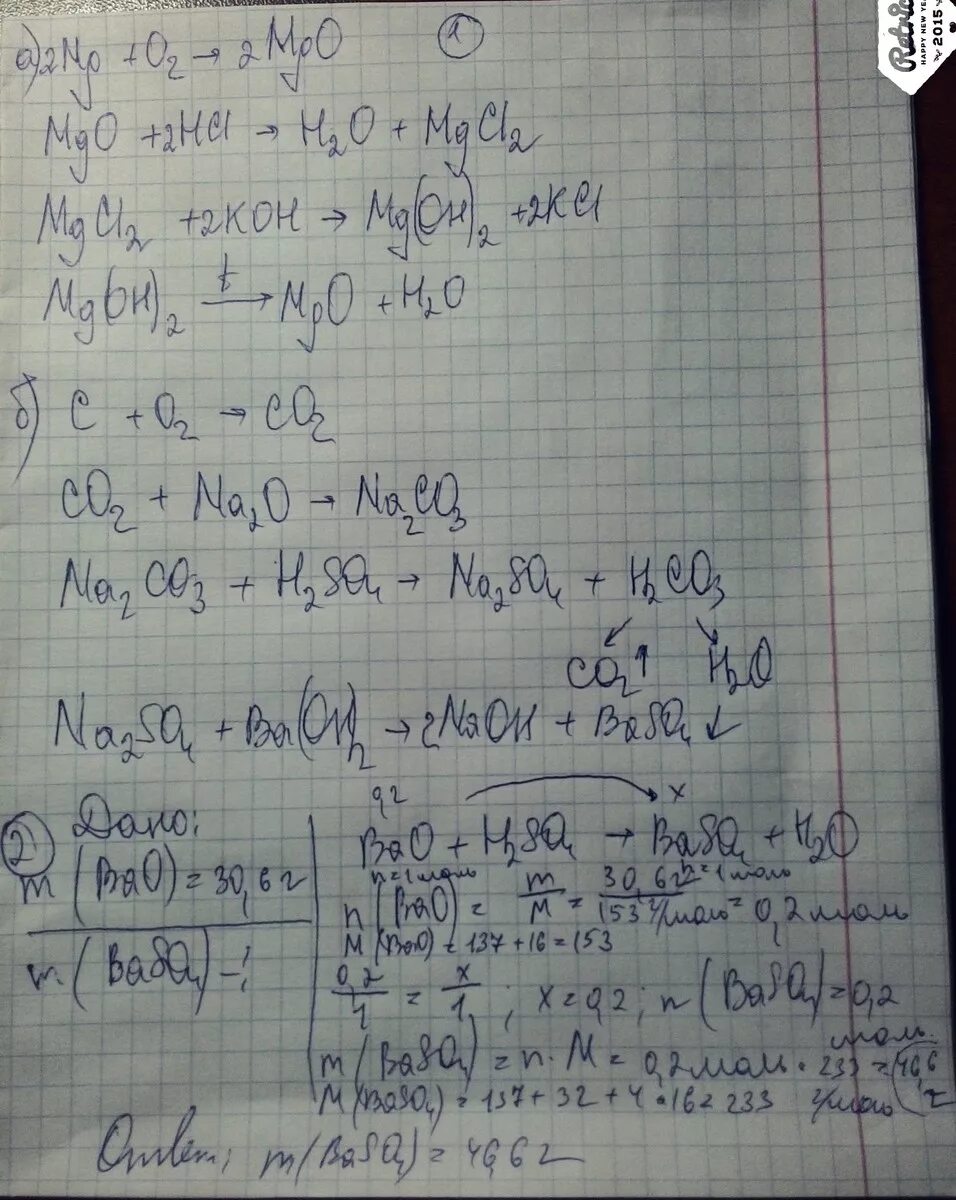 Retrica
HAPPY NEW YEAR
2015
а) 2Mg + O₂ → 2MgO ①
MgO + 2HCl → H₂O + MgCl₂
MgCl₂ + 2KOH → Mg(OH)₂ + 2KCl
Mg(OH)₂ t→ MgO + H₂O
б) C + O₂ → CO₂
CO₂ + Na₂O → Na₂CO₃
Na₂CO₃ + H₂SO₄ → Na₂SO₄ + H₂CO₃
↙ ↘
CO₂↑ H₂O
Na₂SO₄ + Ba(OH)₂ → 2NaOH + BaSO₄↓
② Дано:
m(BaO) = 30,6 г
m(BaSO₄) - ?
0,2 x
BaO + H₂SO₄ → BaSO₄ + H₂O
n=1 моль n=1 моль
n(BaO) = m/M = 30,6 г/153 г/моль = 0,2 моль
M(BaO) = 137 + 16 = 153
0,2/1 = x/1; x = 0,2; n(BaSO₄) = 0,2
моль.
m(BaSO₄) = n · M = 0,2 моль · 233 = 46,6
M(BaSO₄) = 137 + 32 + 4 · 16 = 233 г/моль г
Ответ: m(BaSO₄) = 46,6 г